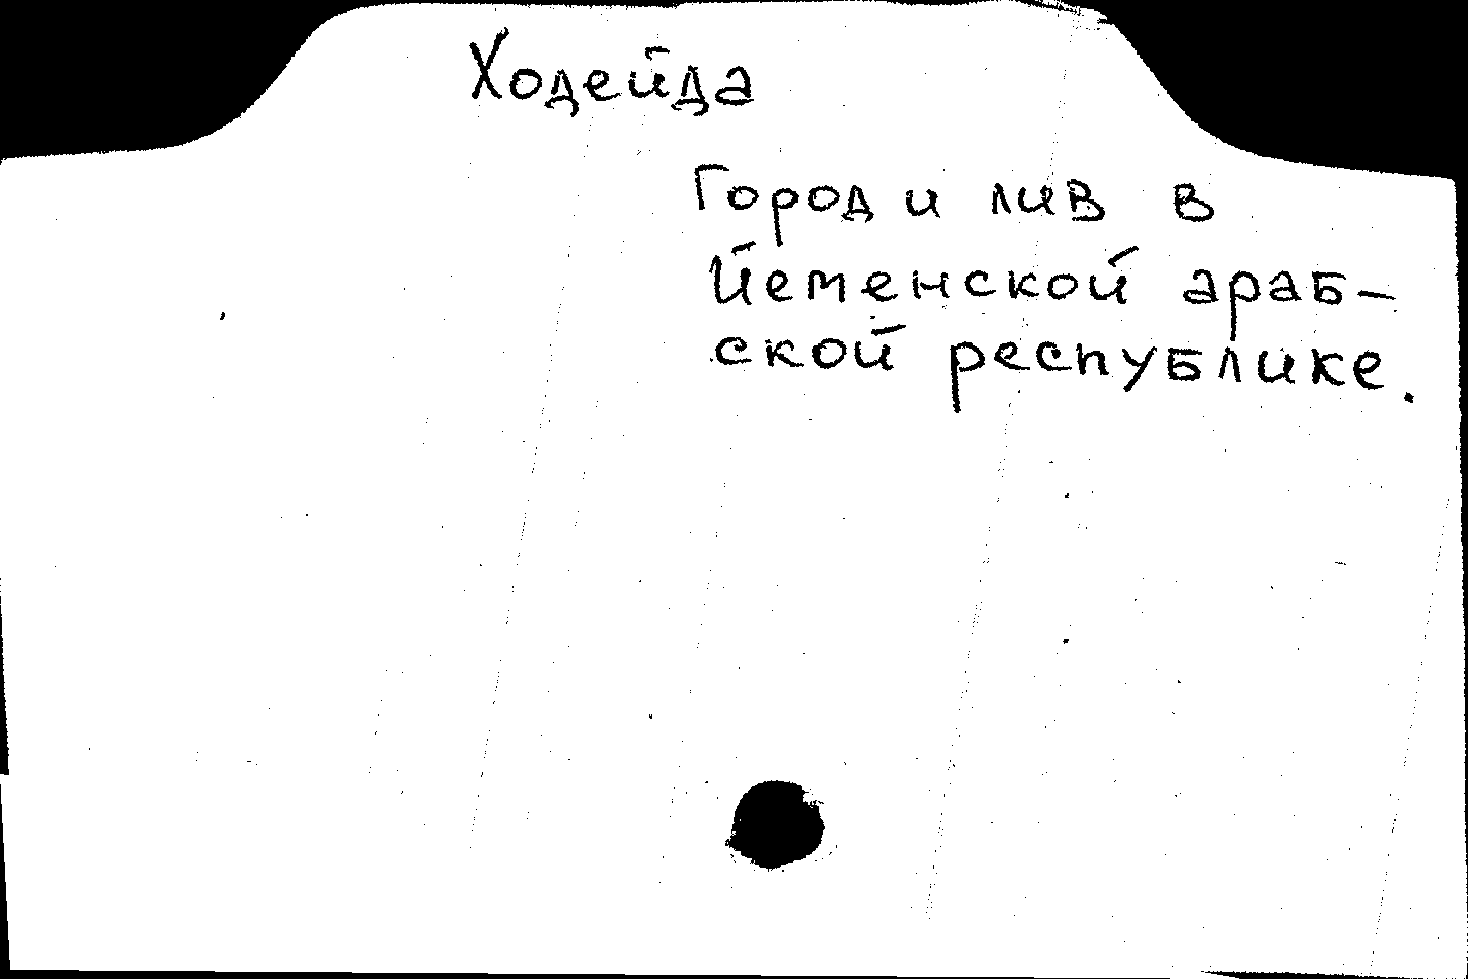 Ходейда
Город и лив в
Йеменской араб-
ской республике.